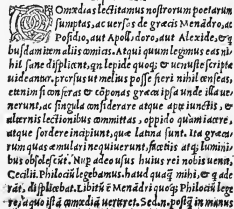 COmœdias lectitamus nostrorum poetarum
sumptas, ac uersos de græcis Menādro, ac
Posidio, aut Apollodoro, aut Alexide, & q
busdam item aliis comicis. Atqui quum legimus eas ni-
hil sane displicent, qn lepide quoq; & uenuste scriptæ
uideantur. prorsus ut melius posse fieri nihil censeas,
etenim si conferas & cōponas græca ipsa unde illa ue-
nerunt, ac singula considerare atque apte iunctis, &
alternis lectionibus committas, oppido quàm iacere,
atque sordere incipiunt, quæ latina sunt. Ita græca-
rum quas æmulari nequiuerunt, facetiis atq; lumini-
bus obsolescūt. Nup adeo usus huius rei nobis uenit.
Cecilii Philocium legebamus. haud quaq̄ mihi, & q ade
rāt, displicebat. Libitū ē Menādri quoq; Philocium lege
re, a quo istā comœdiā uerterat. Sed n. postq̄ in manus